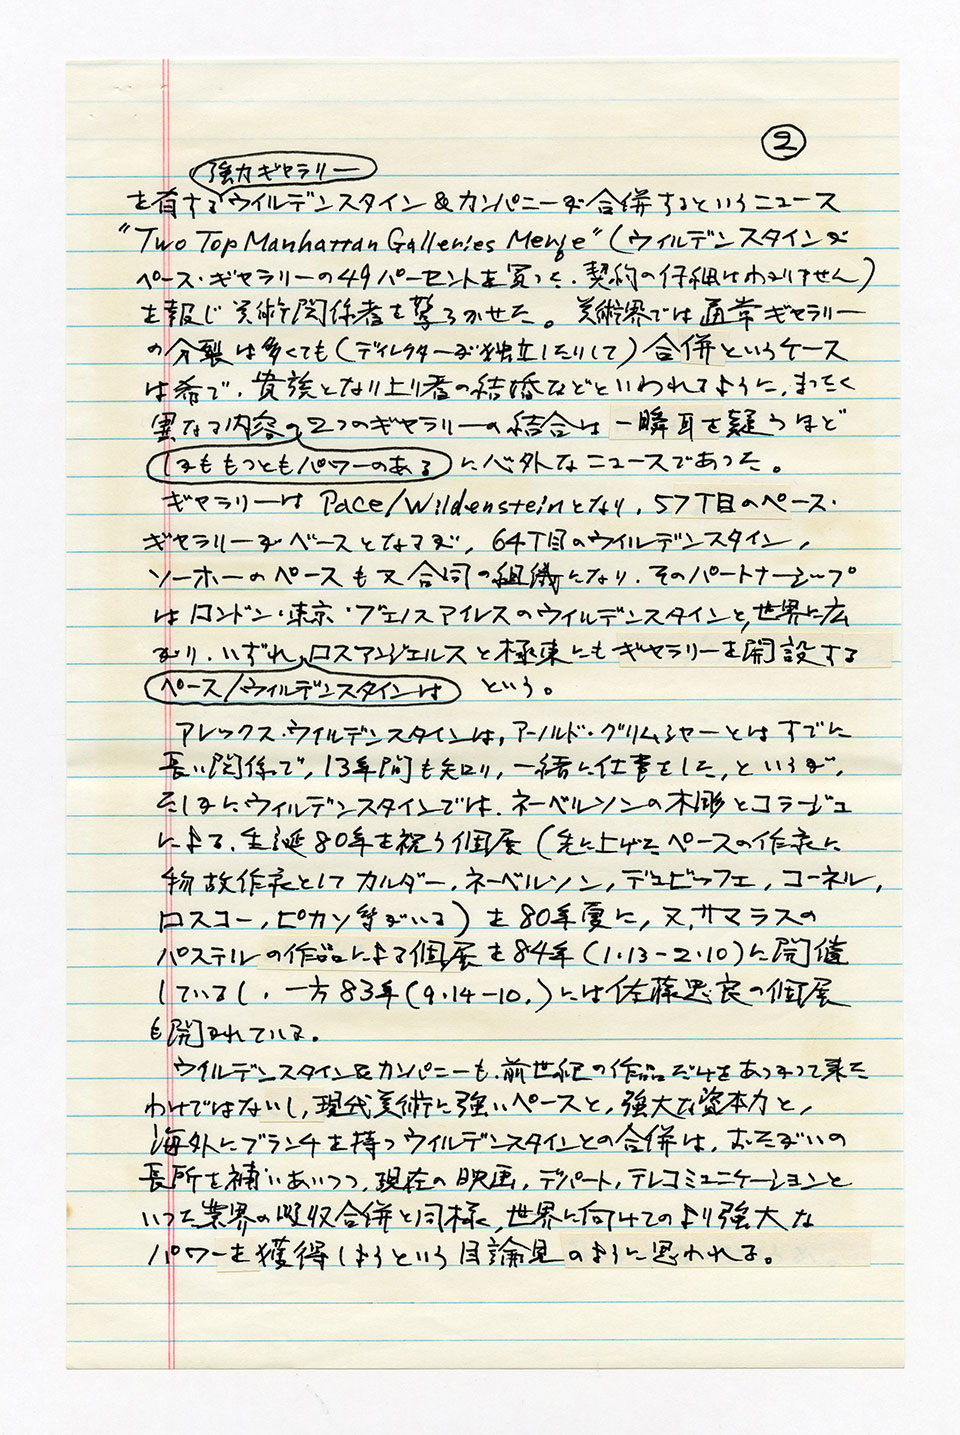 ②
強力ギャラリー
を有するウイルデンスタイン&カンパニーが合併するというニュース
"Two Top Manhattan Galleries Merge"(ウィルデンスタインが
ペース・ギャラリーの49パーセントを買った、契約の仔細はわかりません)
を報じ美術関係者を驚ろかせた。美術界では通常ギャラリー
の分裂は多くても(ディレクターが独立したりして)合併というケース
は希で、貴族となり上り者の結婚などといわれるように、まったく
異なる内容の2つのギャラリーの結合は一瞬耳を疑うほど
しかももっともパワーのある に心外なニュースであった。
ギャラリーは Pace/Wildensteinとなり、57丁目のペース・
ギャラリーがベースとなるが、64丁目のウィルデンスタイン、
ソーホーのペースも又合同の組織になり、そのパートナーシップ
はロンドン・東京・ブエノスアイレスのウィルデンスタインと、世界に広
がり、いずれ、ロスアンジェルスと極東にもギャラリーを開設する
ペース/ウィルデンスタインは という。
アレックス・ウイルデンスタインは、アーノルド・グリムシャーとはすでに
長い関係で、13年間も知り、一緒に仕事をした、というが、
たしかにウィルデンスタインでは、ネーベルソンの木彫とコラージュ
による、生誕80年を祝う個展(先に上げたペースの作家に
物故作家として カルダー、ネーベルソン、デュビュッフェ、コーネル、
ロスコー、ピカソ等がいる)を80年夏に、又、サマラスの
パステルの作品による個展を84年(1・13-2・10)に開催
しているし、一方83年(9・14-10.)には佐藤忠良の個展
も開かれている。
ウイルデンスタイン&カンパニーも、前世紀の作品だけをあつかって来た
わけではないし、現代美術に強いペースと、強大な資本力と、
海外にブランチを持つウィルデンスタインとの合併は、おたがいの
長所を補いあいつつ、現在の映画、デパート、テレコミュニケーションと
いった業界の吸収合併と同様、世界に向けてのより強大な
パワーを獲得しようという目論見のように思われる。